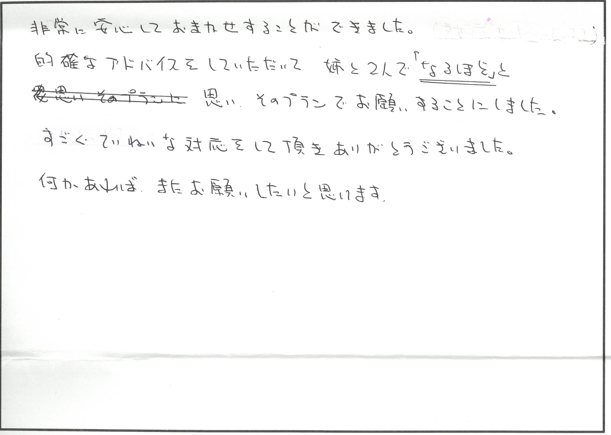 非常に安心しておまかせすることができました。
的確なアドバイスをしていただいて 姉と2人で「なるほど」と
思い そのプランに 思い そのプランでお願いすることにしました。
すごくていねいな対応をして頂きありがとうございました。
何かあれば またお願いしたいと思います。